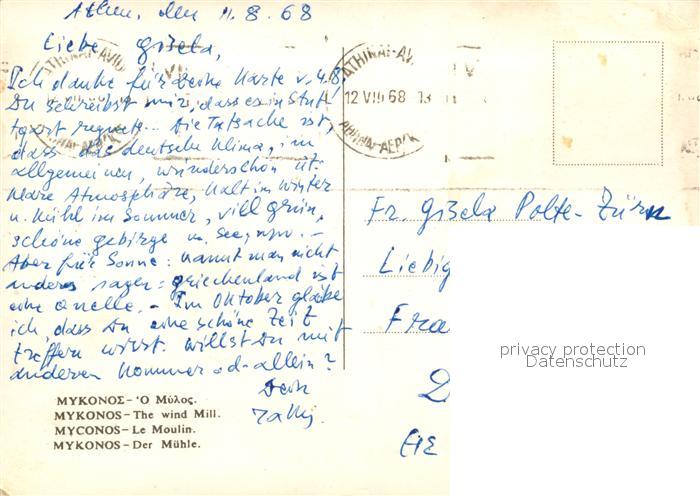 Athen, den 11.8.68
Liebe Gisela,
Ich danke für Deine Karte v. 4.8.
Du schreibst mir, dass es in Stutt
gart regnet... Die Tatsache ist,
dass das deutsche Klima, im
allgemeinen, wunderschön ist.
Klare Atmosphäre, kalt im Winter
u. kühl im Sommer, viel grün,
schöne gebirge u. see, usw. -
Aber für Sonne: kannt man nicht
anderes sagen: griechenland ist
eine Quelle. - Im Oktober glaube
ich dass Du eine schöne Zeit
treffen wirst. Willst Du mit
anderen kommen od. allein?
Dein
ATHINAI-AVION
12 VIII 68 13
ATHINAI-AEROP
Fr. Gisela Polte-Zürn
Liebig
Fra
D
privacy protection
Datenschutz
ΜΥΚΟΝΟΣ - Ὁ Μύλος.
MYKONOS - The wind Mill.
MYCONOS - Le Moulin.
MYKONOS - Der Mühle.